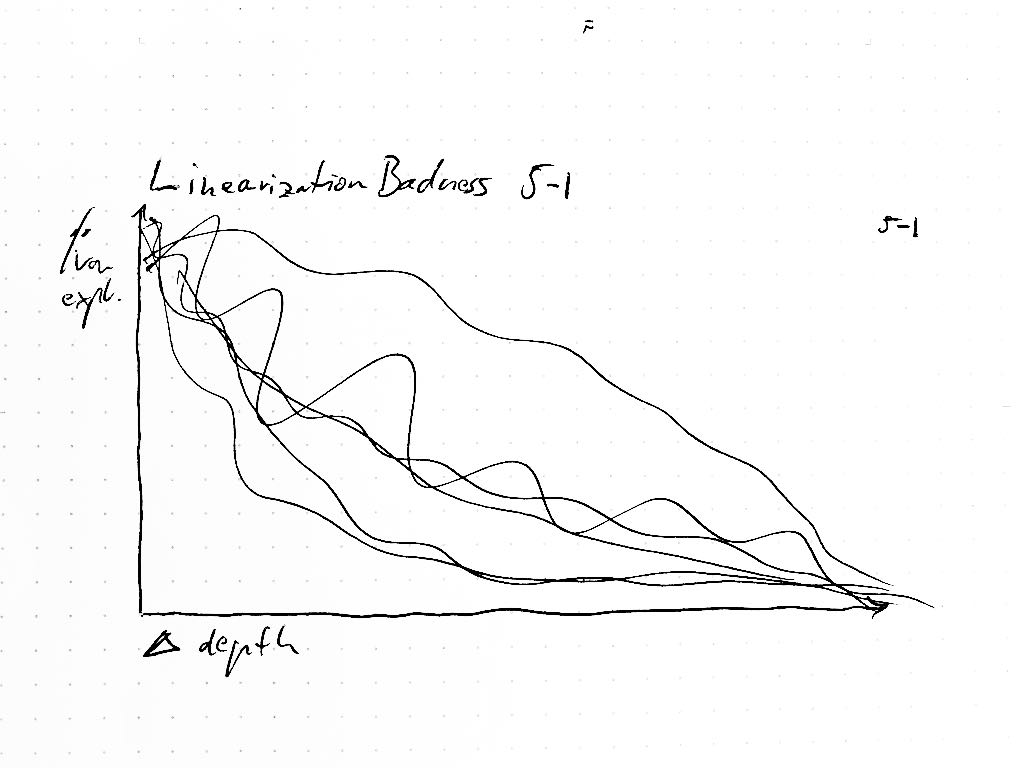 F
Linearization Badness 5-1
5-1
% var
expl.
Δ depth